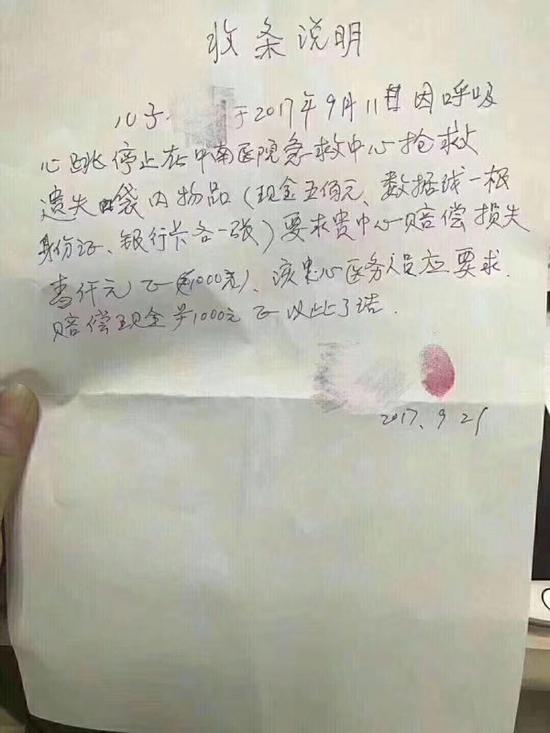 收条说明
儿子 于2017年9月11日因呼吸
心跳停止在中南医院急救中心抢救
遗失口袋内物品（现金五佰元、数据线一根
身份证、银行卡各一张）要求贵中心赔偿损失
壹仟元正（1000元）、该中心医务人员应要求.
赔偿现金¥1000元正以此了结.
2017.9.21